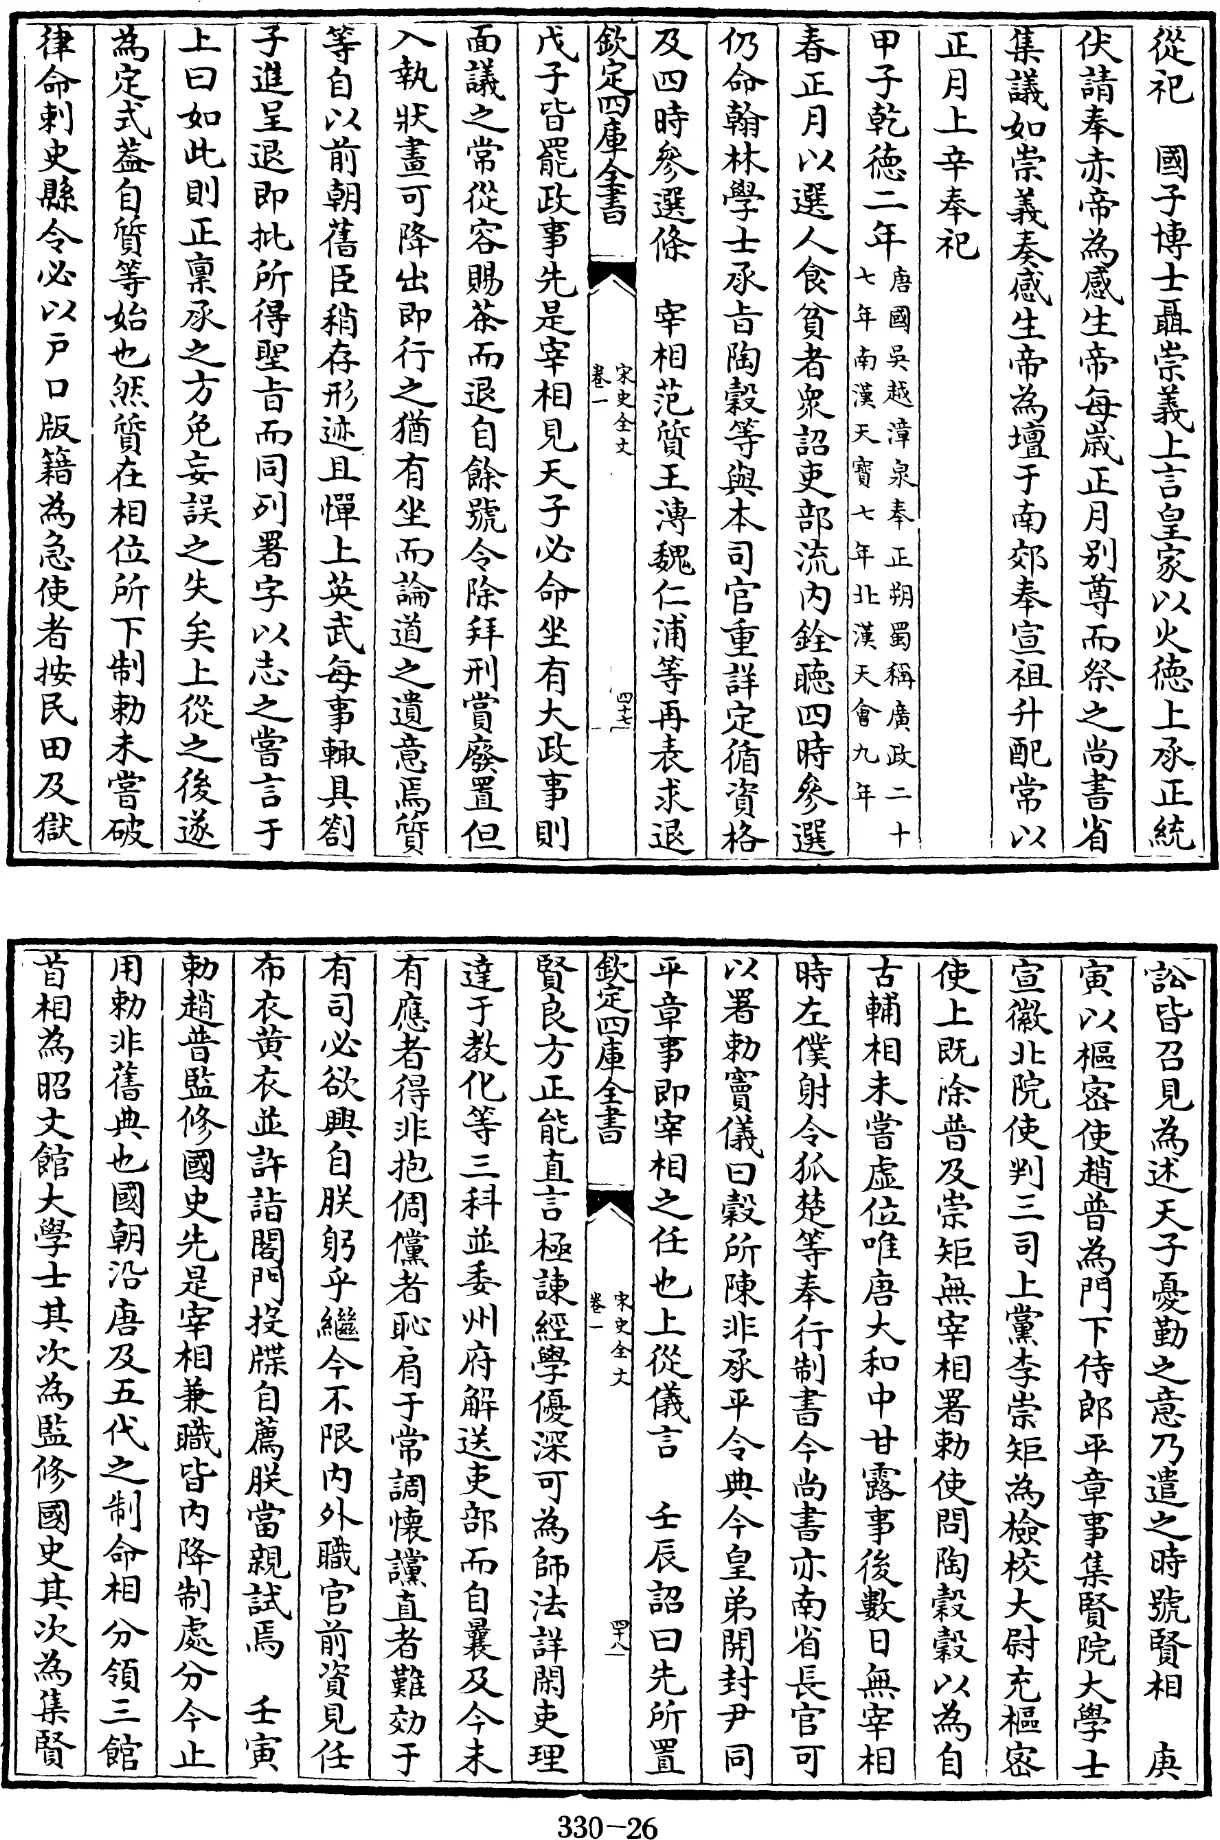 從祀　國子博士聶崇義上言皇家以火德上承正統
伏請奉赤帝為感生帝每歳正月别尊而祭之尚書省
集議如崇義奏感生帝為壇于南郊奉宣祖升配常以
正月上辛奉祀
甲子乾德二年唐國吳越漳泉奉正朔蜀稱廣政二十
七年南漢天寳七年北漢天會九年
春正月以選人食貧者衆詔吏部流内銓聴四時參選
仍命翰林學士承㫖陶穀等與本司官重詳定循資格
及四時參選條　宰相范質王溥魏仁浦等再表求退
欽定四庫全書
宋史全文
卷一
四十七
戊子皆罷政事先是宰相見天子必命坐有大政事則
面議之常從容賜茶而退自餘號令除拜刑賞廢置但
入執狀畫可降出即行之猶有坐而論道之遺意焉質
等自以前朝舊臣稍存形迹且憚上英武每事輙具劄
子進呈退即批所得聖㫖而同列署字以志之嘗言于
上曰如此則正稟承之方免妄誤之失矣上從之後遂
為定式葢自質等始也然質在相位所下制勅未嘗破
律命刺史縣令必以戸口版籍為急使者按民田及獄
訟皆召見為述天子憂勤之意乃遣之時號賢相　庚
寅以樞密使趙普為門下侍郎平章事集賢院大學士
宣徽北院使判三司上黨李崇矩為檢校大尉充樞密
使上既除普及崇矩無宰相署勅使問陶穀穀以為自
古輔相未嘗虚位唯唐大和中甘露事後數日無宰相
時左僕射令狐楚等奉行制書今尚書亦南省長官可
以署勅竇儀曰穀所陳非承平令典今皇弟開封尹同
平章事即宰相之任也上從儀言　壬辰詔曰先所置
欽定四庫全書
宋史全文
卷一
四十八
賢良方正能直言極諫經學優深可為師法詳閑吏理
達于教化等三科並委州府解送吏部而自曩及今未
有應者得非抱倜儻者恥肩于常調懷讜直者難効于
有司必欲興自朕躬乎繼今不限内外職官前資見任
布衣黄衣並許詣閤門投牒自薦朕當親試焉　壬寅
勅趙普監修國史先是宰相兼職皆内降制處分今止
用勅非舊典也國朝沿唐及五代之制命相分領三館
首相為昭文館大學士其次為監修國史其次為集賢
330-26